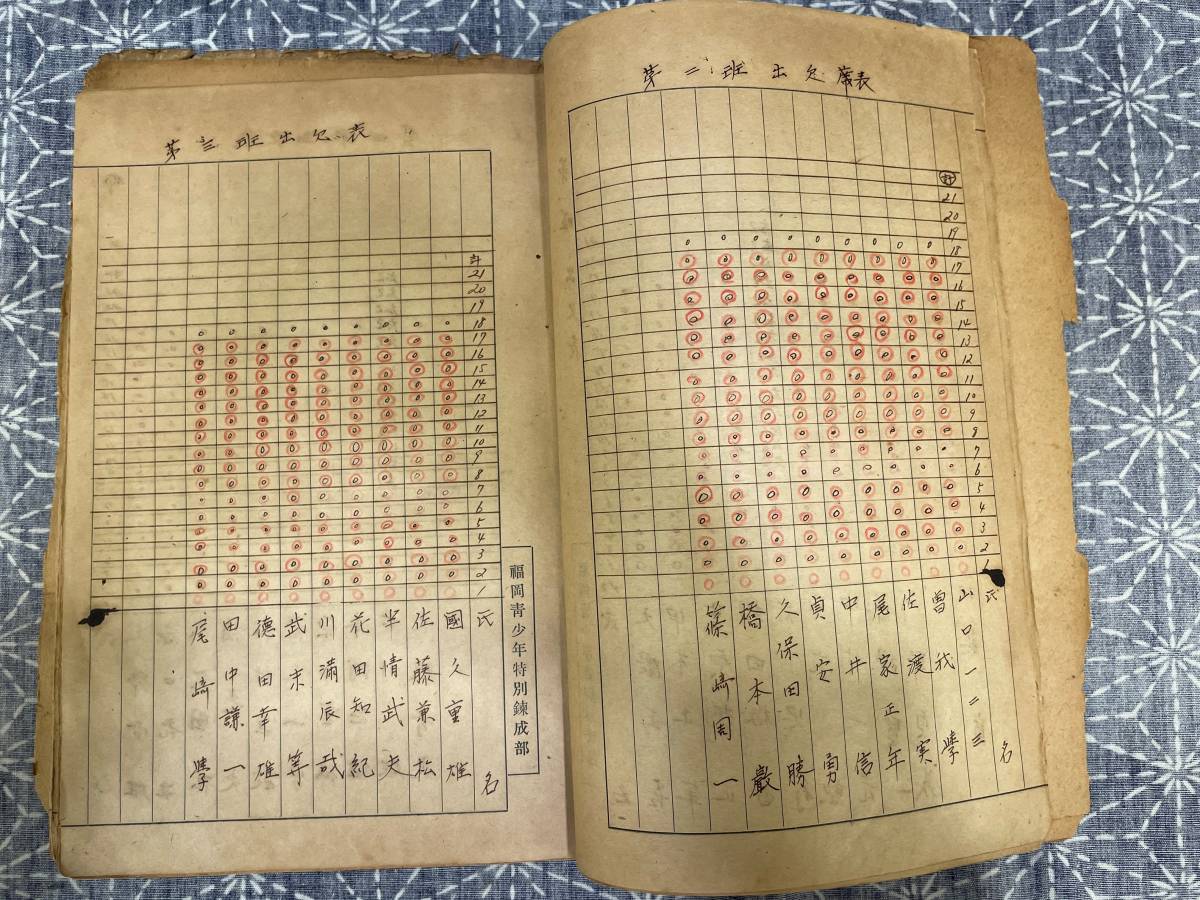 第二班出欠席表
氏名
山口一二三
曽我學
佐渡実
尾家正年
中井信
貞安勇
久保田勝
橋本嚴
篠崎周一
計
21
20
19
18
17
16
15
14
13
12
11
10
9
8
7
6
5
4
3
2
1
第三班出欠表
氏名
國久重雄
佐藤兼松
半情武夫
花田知紀
川满辰哉
武末等
德田幸雄
田中謙一
尾崎學
計
21
20
19
18
17
16
15
14
13
12
11
10
9
8
7
6
5
4
3
2
1
福岡青少年特別鍊成部